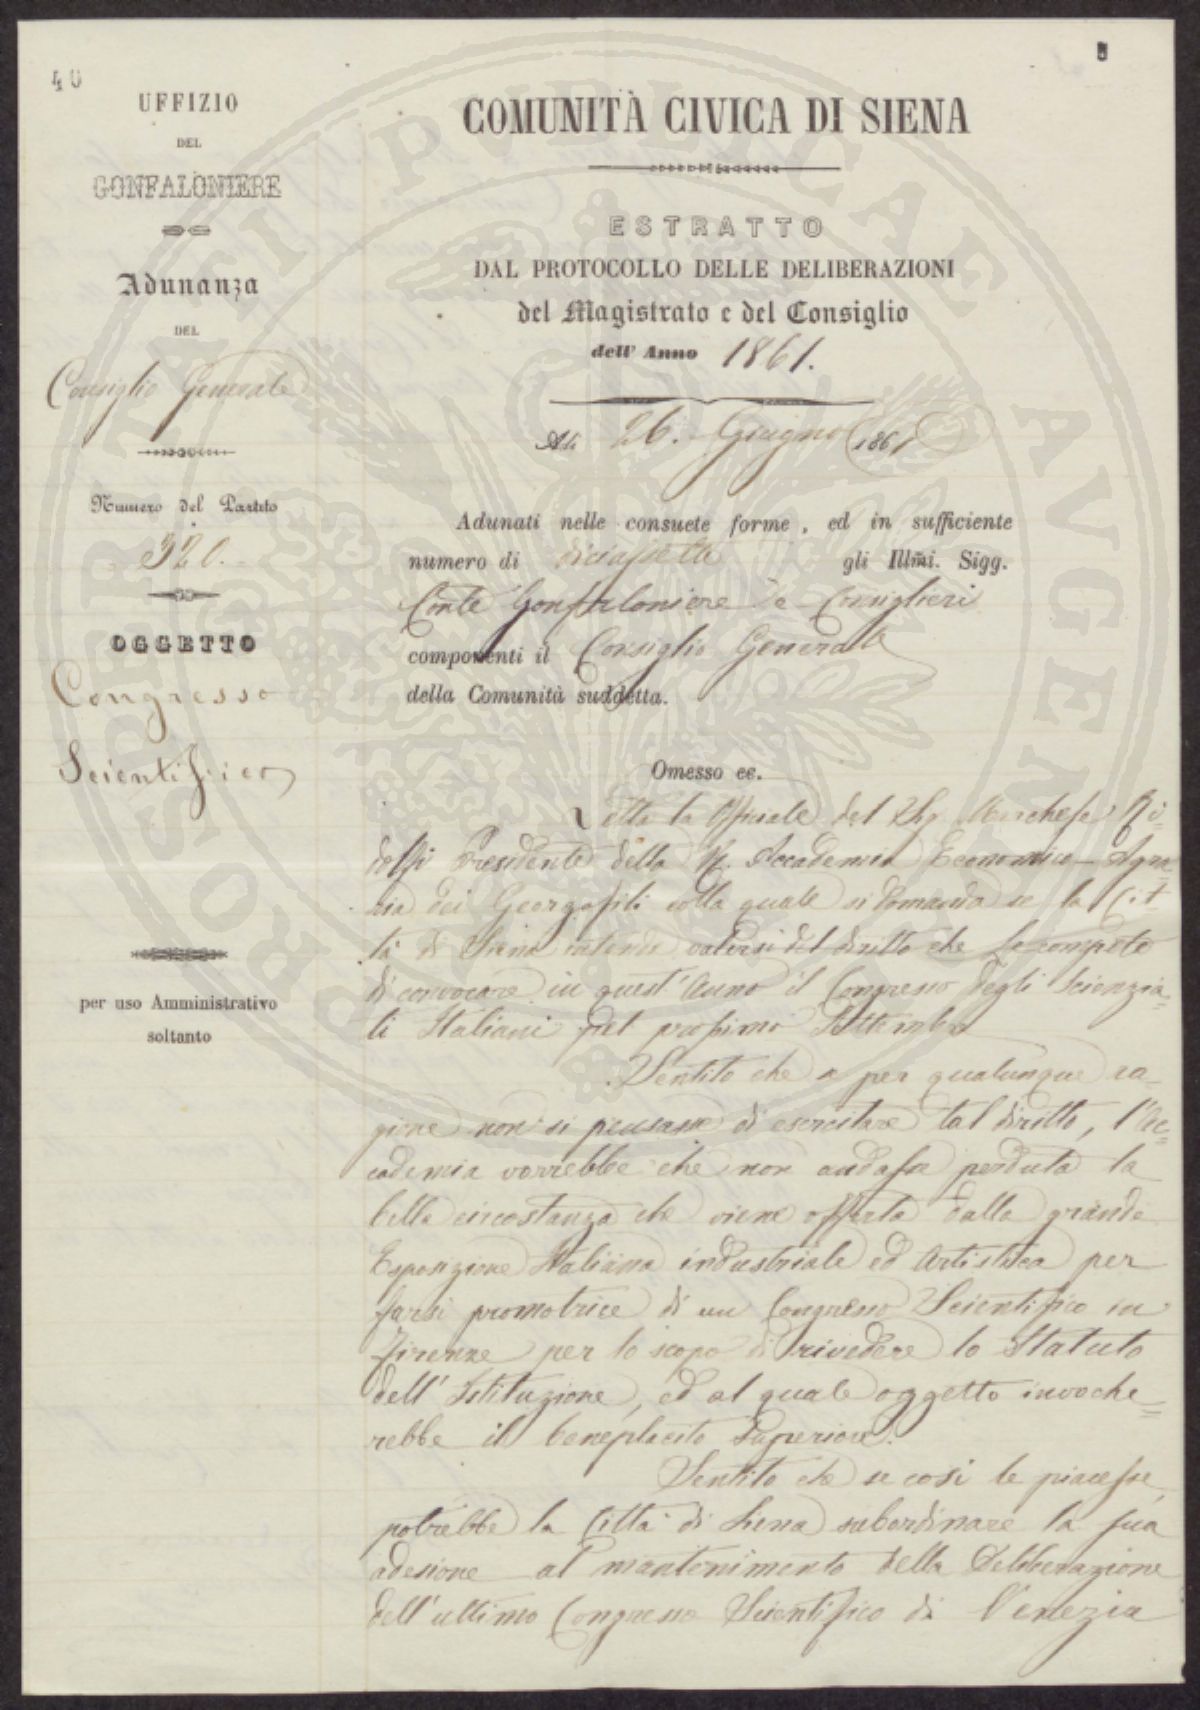 40
UFFIZIO
DEL
GONFALONIERE
Adunanza
DEL
Consiglio Generale
Numero del Partito
320.
OGGETTO
Congresso
Scientifico
per uso Amministrativo
soltanto
COMUNITÀ CIVICA DI SIENA
ESTRATTO
DAL PROTOCOLLO DELLE DELIBERAZIONI
del Magistrato e del Consiglio
dell' Anno 1861.
Ali 26. Giugno 1861
Adunati nelle consuete forme, ed in sufficiente
numero di diciassette gli Illm̃i. Sigg.
Conte Gonfaloniere e Consiglieri
componenti il Consiglio Generale
della Comunità suddetta.
Omesso ec.
Letta la Officiale del Sig. Marchese Ri-
dolfi Presidente della R. Accademia Economico-Agra=
ria dei Georgofili colla quale si domanda se la Cit=
tà di Siena intende valersi del diritto che le compete
di convocare in quest'Anno il Congresso degli Scienzia=
ti Italiani nel prossimo Settembre
Sentito che a per qualunque ra-
gione non si pensasse di esercitare tal diritto, l'Ac=
cademia vorrebbe che non andasse perduta la
bella circostanza che viene offerta dalla grande
Esposizione Italiana industriale ed Artistica per
farsi promotrice di un Congresso Scientifico in
Firenze per lo scopo di rivedere lo Statuto
dell'Istituzione, ed al quale oggetto invoche=
rebbe il beneplacito Superiore.
Sentito che se così le piacesse,
potrebbe la Città di Siena subordinare la sua
adesione al mantenimento della Deliberazione
dell'ultimo Congresso Scientifico di Venezia
PROSPERITATI PUBLICAE AUGENDAE